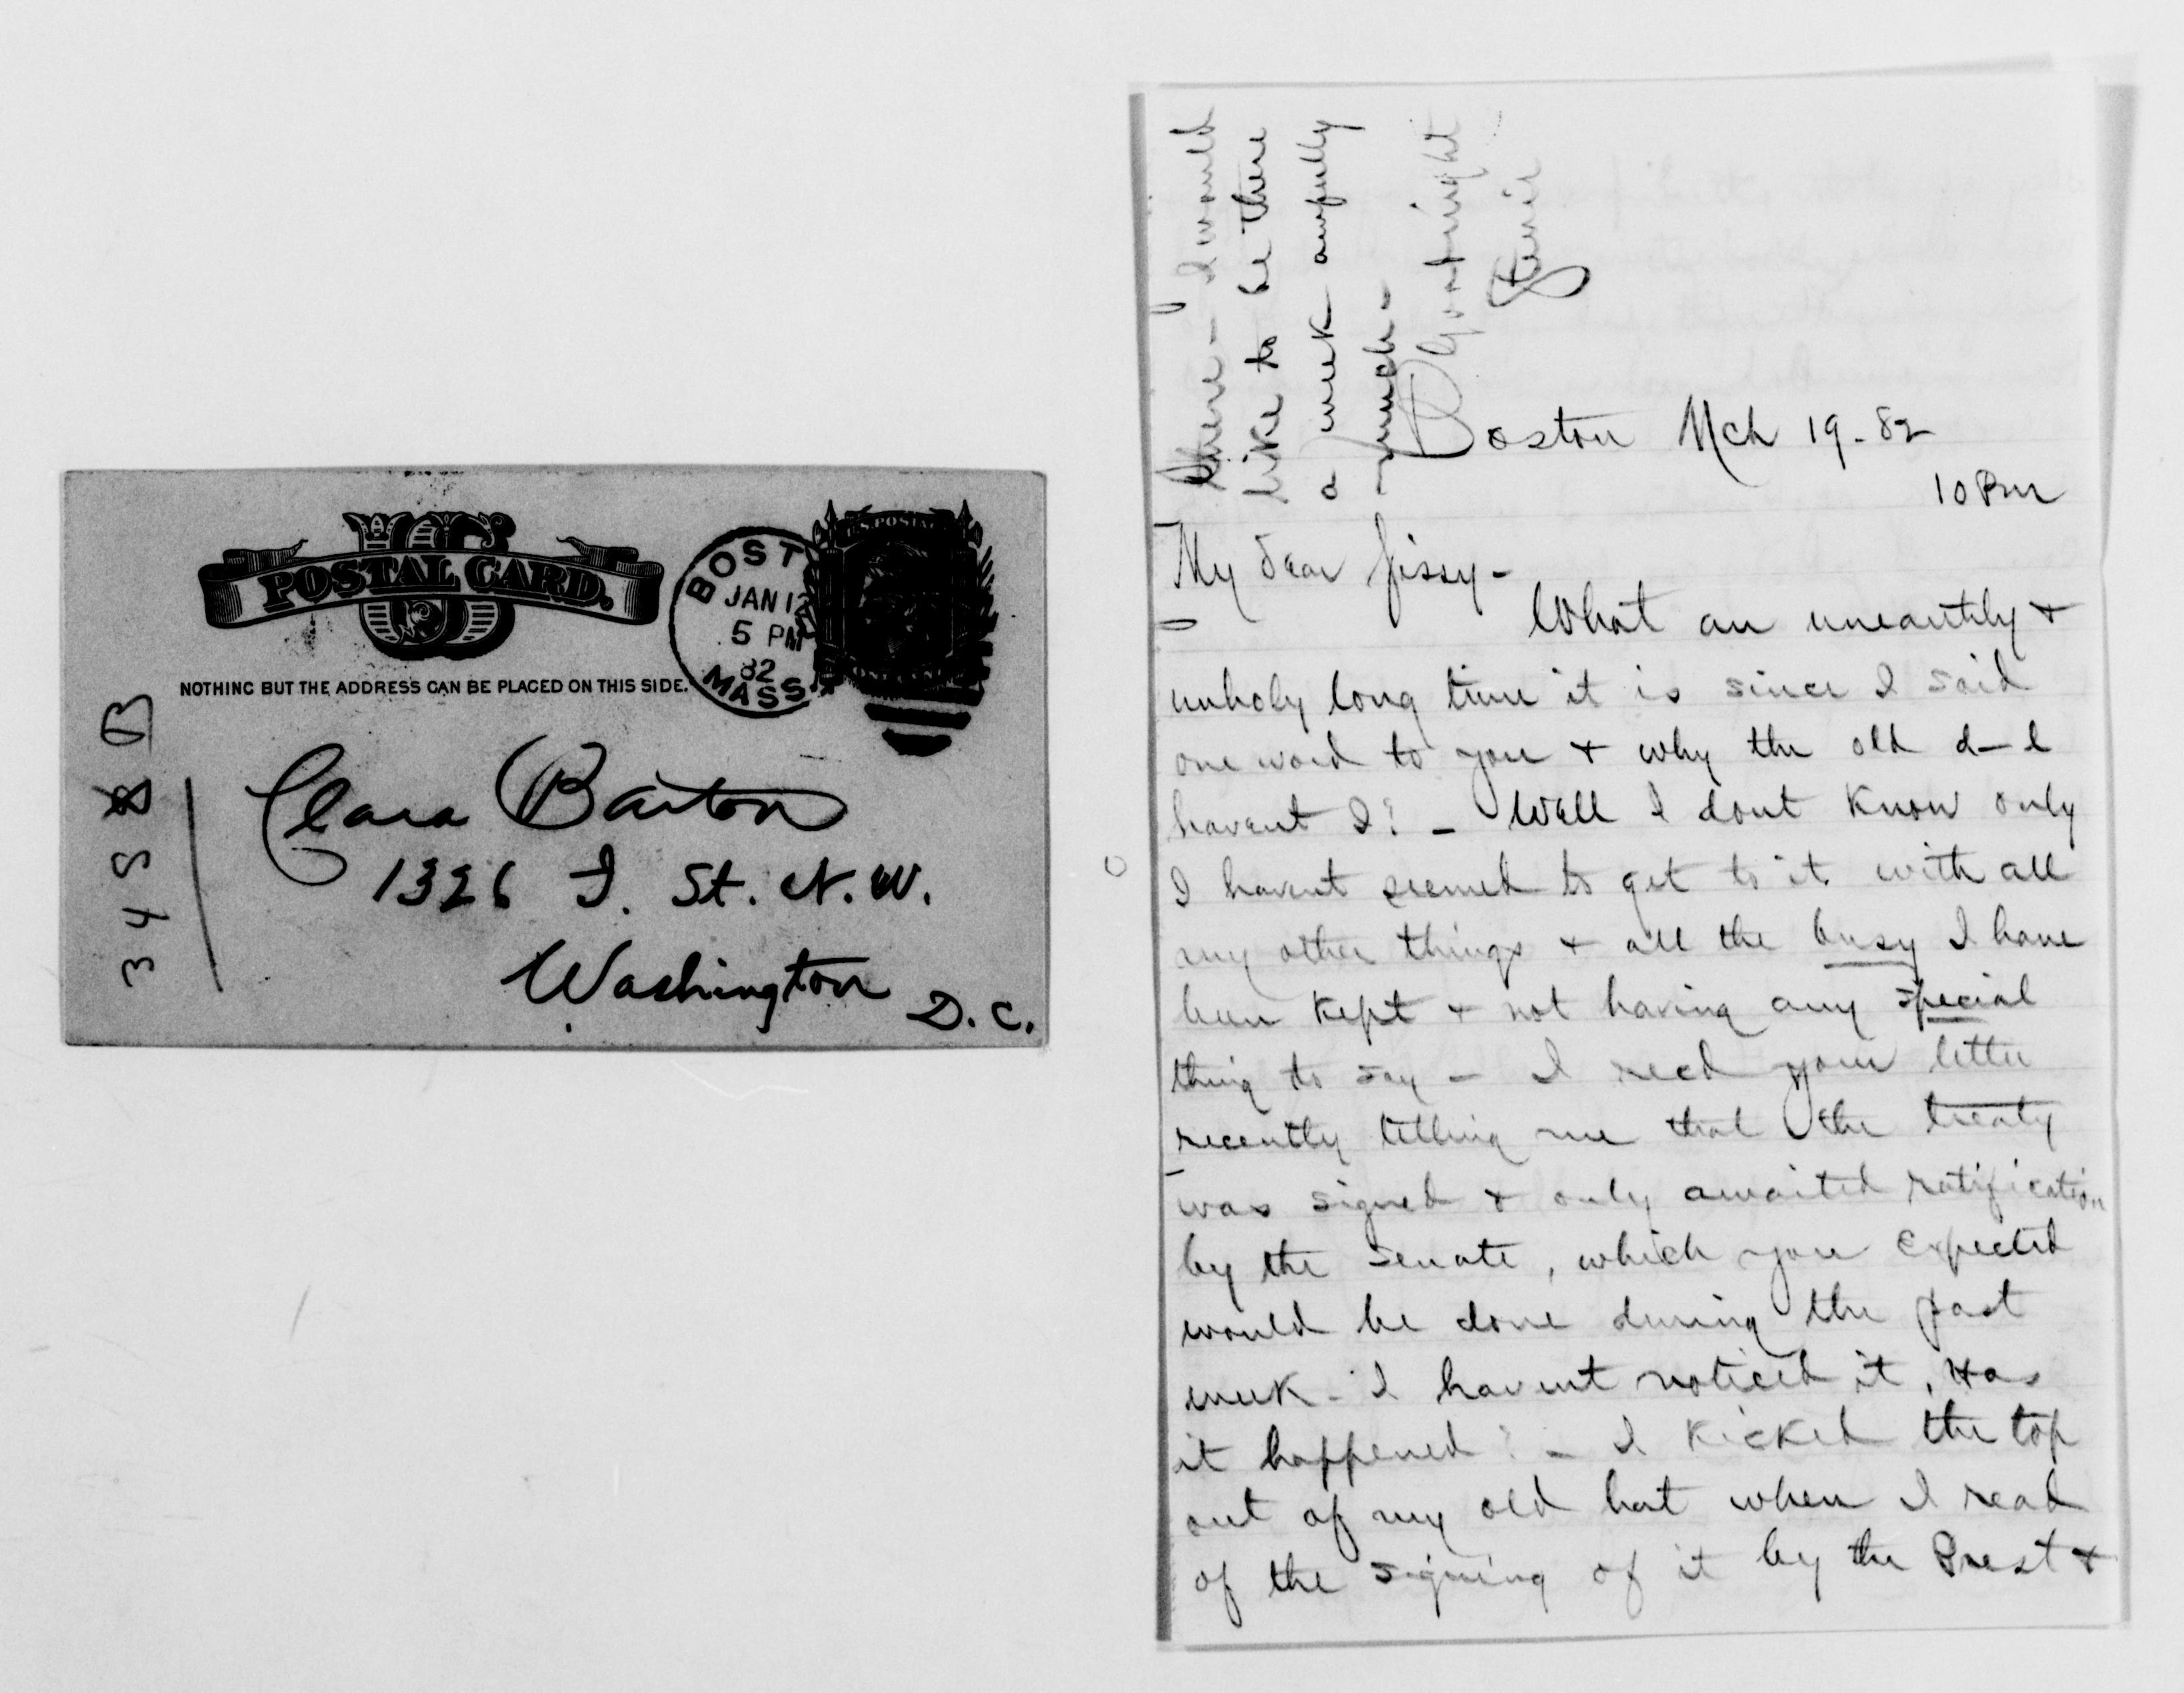 US
POSTAL CARD.
NOTHING BUT THE ADDRESS CAN BE PLACED ON THIS SIDE.
BOST
JAN 12
5 PM
82
MASS.
U.S. POSTAL
ONE CENT
Clara Barton
1326 I. St. N.W.
Washington
D.C.
3458 B
there - I would
like to be there
a week awfully
much -
Goodnight
Boston Mch 19 - 82
10 Pm
My dear Sissy -
What an unearthly &
unholy long time it is since I said
one word to you & why the old d - l
havent I? - Well I dont know only
I havent seemed to get to it with all
my other things & all the busy I have
been kept & not having any special
thing to say - I recd your letter
recently telling me that the treaty
was signed & only awaited ratification
by the Senate, which you expected
would be done during the past
week - I havent noticed it, Has
it happened? - I kicked the top
out of my old hat when I read
of the signing of it by the Prest &